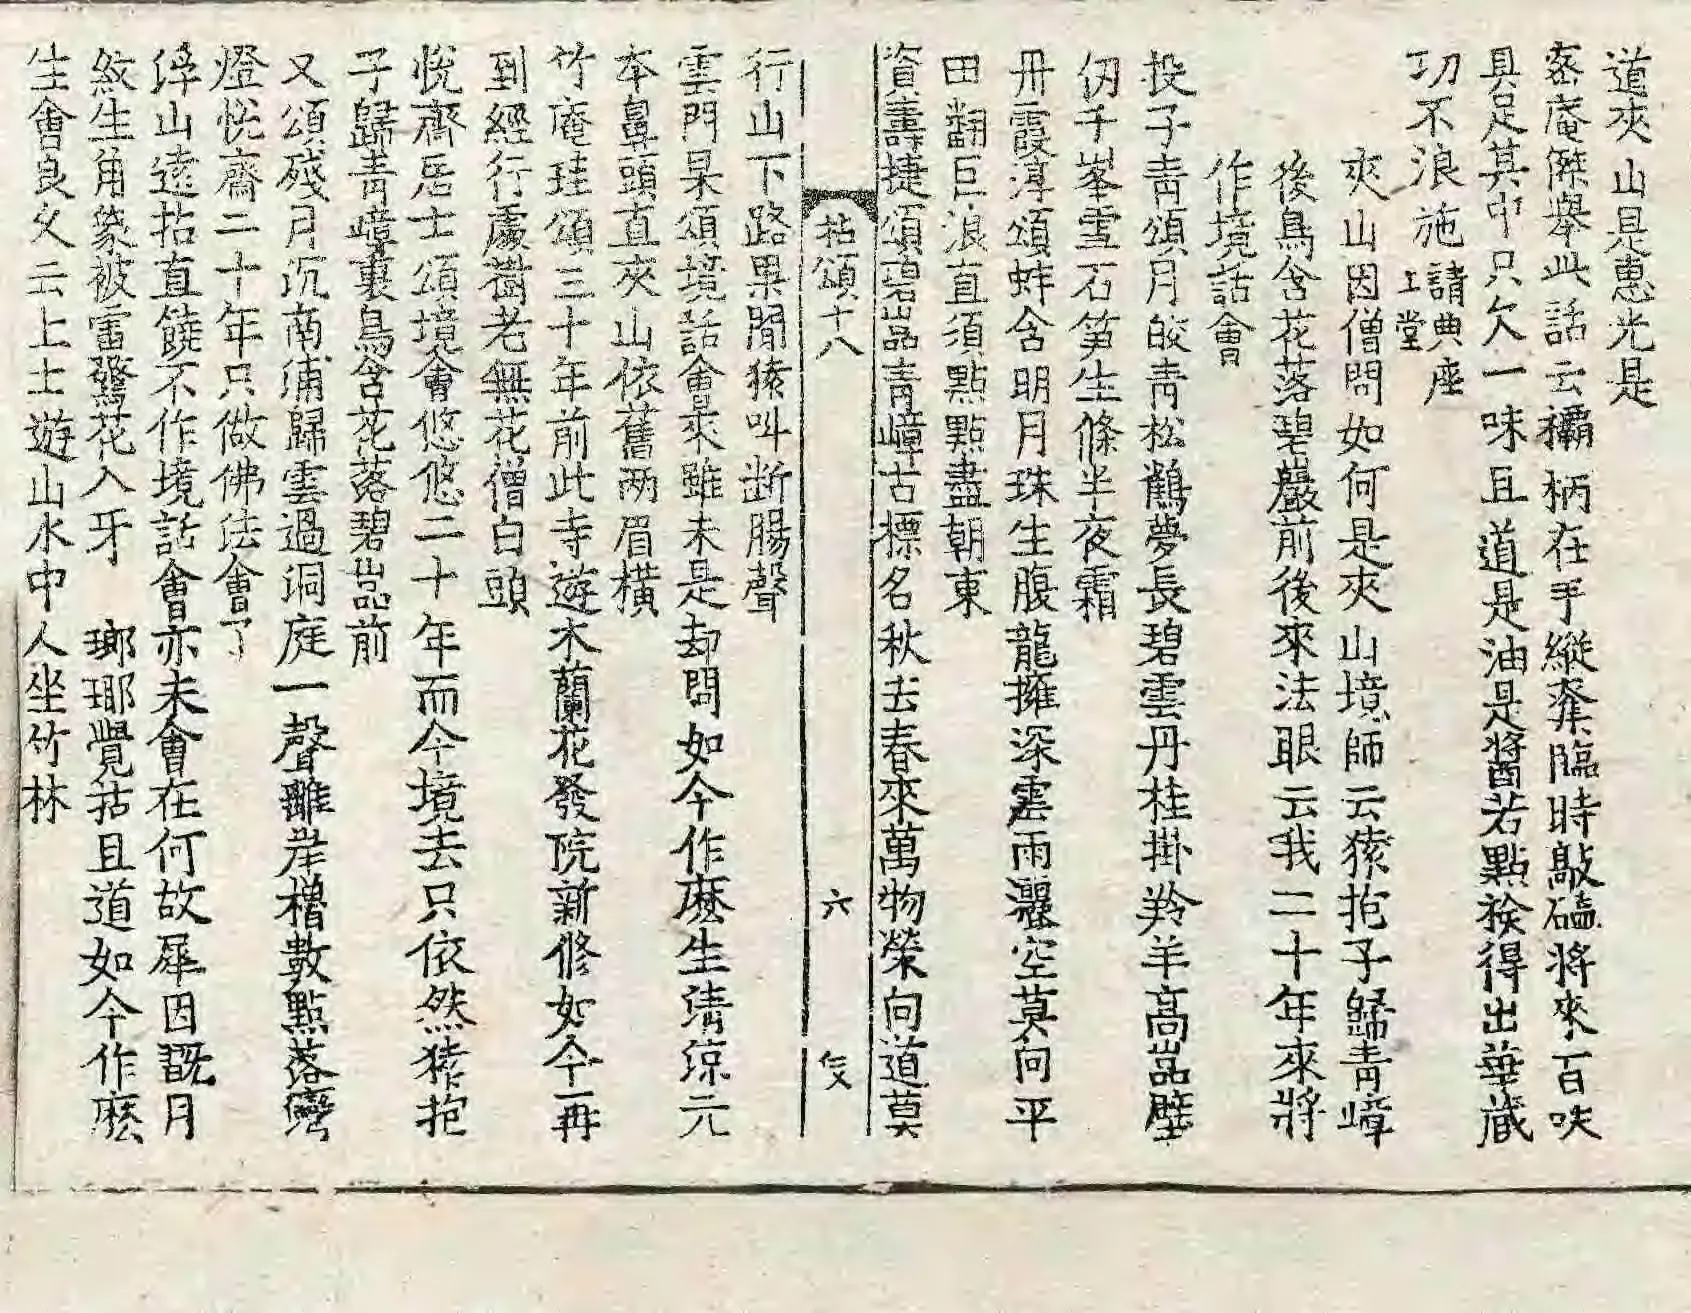 道夾山是惠光是
密庵傑舉此話云欛柄在手縱奪臨時敲磕將來百味
具足其中只欠一味且道是油是醬若點撿得出華藏
功不浪施 請典座上堂
夾山因僧問如何是夾山境師云猿抱子歸青嶂
後鳥含花落碧巖前後來法眼云我二十年來將
作境話會
投子青頌月皎青松鶴夢長碧雲丹桂掛羚羊高嵓壁
仞千峯雪石笋生條半夜霜
丹霞淳頌蚌含明月珠生腹龍擁深雲雨灑空莫向平
田翻巨浪直須點點盡朝東
資壽捷頌碧嵓青嶂古摽名秋去春來萬物榮向道莫
拈頌十八 六
行山下路果聞猿叫断腸聲
雲門杲頌境話會來雖未是却問如今作麽生清凉元
本鼻頭直夾山依舊两眉橫
竹庵珪頌三十年前此寺遊木蘭花發院新修如今再
到經行處樹老無花僧白頭
悅齋居士頌境會悠悠二十年而今境去只依然猿抱
子歸青嶂裏鳥含花落碧嵓前
又頌殘月沉南浦歸雲過洞庭一聲離岸櫓數點落灣
燈悅齋二十年只做佛法會了
浮山遠拈直饒不作境話會亦未會在何故犀因翫月
紋生角象被雷驚花入牙 瑯瑘覺拈且道如今作麽
生會良久云上士遊山水中人坐竹林